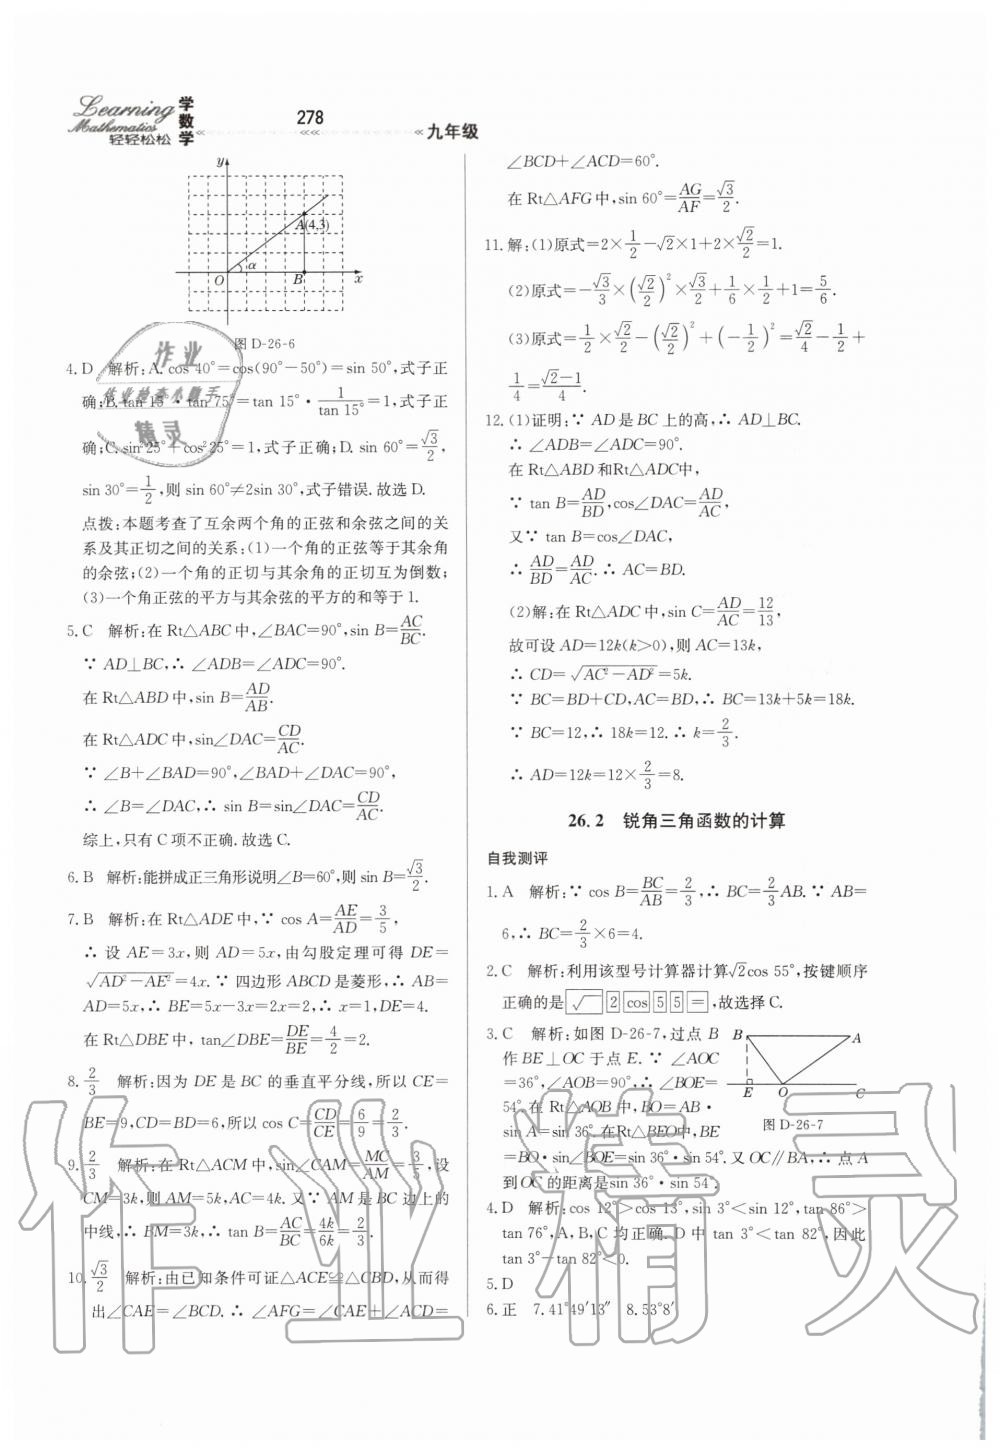 Learning
Mathematics
轻轻松松
学数学
278
九年级
y
A(4,3)
α
O
B
x
图 D-26-6
4. D 解析:A. cos 40°=cos(90°-50°)=sin 50°,式子正
确;B. tan 15°·tan 75°=tan 15°·1/tan 15°=1,式子正
确;C. sin²25°+cos²25°=1,式子正确;D. sin 60°=√3/2,
sin 30°=1/2,则 sin 60°≠2sin 30°,式子错误.故选 D.
点拨:本题考查了互余两个角的正弦和余弦之间的关
系及其正切之间的关系:(1)一个角的正弦等于其余角
的余弦;(2)一个角的正切与其余角的正切互为倒数;
(3)一个角正弦的平方与其余弦的平方的和等于 1.
5. C 解析:在 Rt△ABC 中,∠BAC=90°,sin B=AC/BC.
∵ AD⊥BC,∴ ∠ADB=∠ADC=90°.
在 Rt△ABD 中,sin B=AD/AB.
在 Rt△ADC 中,sin∠DAC=CD/AC.
∵ ∠B+∠BAD=90°,∠BAD+∠DAC=90°,
∴ ∠B=∠DAC,∴ sin B=sin∠DAC=CD/AC.
综上,只有 C 项不正确.故选 C.
6. B 解析:能拼成正三角形说明∠B=60°,则 sin B=√3/2.
7. B 解析:在 Rt△ADE 中,∵ cos A=AE/AD=3/5,
∴ 设 AE=3x,则 AD=5x,由勾股定理可得 DE=
√(AD²-AE²)=4x. ∵ 四边形 ABCD 是菱形,∴ AB=
AD=5x,∴ BE=5x-3x=2x=2,∴ x=1,DE=4.
在 Rt△DBE 中, tan∠DBE=DE/BE=4/2=2.
8. 2/3 解析:因为 DE 是 BC 的垂直平分线,所以 CE=
BE=9,CD=BD=6,所以 cos C=CD/CE=6/9=2/3.
9. 2/3 解析:在 Rt△ACM 中,sin∠CAM=MC/AM=3/5,设
CM=3k,则 AM=5k,AC=4k. 又∵ AM 是 BC 边上的
中线,∴ BM=3k,∴ tan B=AC/BC=4k/6k=2/3.
10. √3/2 解析:由已知条件可证△ACE≌△CBD,从而得
出∠CAE=∠BCD. ∴ ∠AFG=∠CAE+∠ACD=
∠BCD+∠ACD=60°.
在 Rt△AFG 中,sin 60°=AG/AF=√3/2.
11. 解:(1)原式=2×1/2-√2×1+2×√2/2=1.
(2)原式=-√3/3×(√2/2)²×√3/2+1/6×1/2+1=5/6.
(3)原式=1/2×√2/2-(√2/2)²+(-1/2)²=√2/4-1/2+
1/4=(√2-1)/4.
12. (1)证明:∵ AD 是 BC 上的高,∴ AD⊥BC.
∴ ∠ADB=∠ADC=90°.
在 Rt△ABD 和Rt△ADC中,
∵ tan B=AD/BD,cos∠DAC=AD/AC,
又∵ tan B=cos∠DAC,
∴ AD/BD=AD/AC. ∴ AC=BD.
(2)解:在 Rt△ADC 中,sin C=AD/AC=12/13,
故可设 AD=12k(k>0),则 AC=13k,
∴ CD=√(AC²-AD²)=5k.
∵ BC=BD+CD,AC=BD,∴ BC=13k+5k=18k.
∵ BC=12,∴ 18k=12. ∴ k=2/3.
∴ AD=12k=12×2/3=8.
26.2 锐角三角函数的计算
自我测评
1. A 解析:∵ cos B=BC/AB=2/3,∴ BC=2/3AB. ∵ AB=
6,∴ BC=2/3×6=4.
2. C 解析:利用该型号计算器计算√2cos 55°,按键顺序
正确的是 √ 2 cos 5 5 = ,故选择 C.
3. C 解析:如图 D-26-7,过点 B
作 BE⊥OC 于点 E. ∵ ∠AOC
=36°,∠AOB=90°,∴ ∠BOE=
54°.在 Rt△AOB 中,BO=AB·
sin A=sin 36°.在 Rt△BEO中,BE
=BO·sin∠BOE=sin 36°·sin 54°.又 OC∥BA,∴ 点 A
到OC 的距离是sin 36°·sin 54°.
B
A
E
O
C
图 D-26-7
4. D 解析:cos 12°>cos 13°,sin 3°<sin 12°,tan 86°>
tan 76°,A,B,C 均正确. D 中 tan 3°<tan 82°,因此
tan 3°-tan 82°<0.
5. D
6. 正 7. 41°49′13″ 8. 53°8′
作业
作业检查小助手
精灵
作业精灵